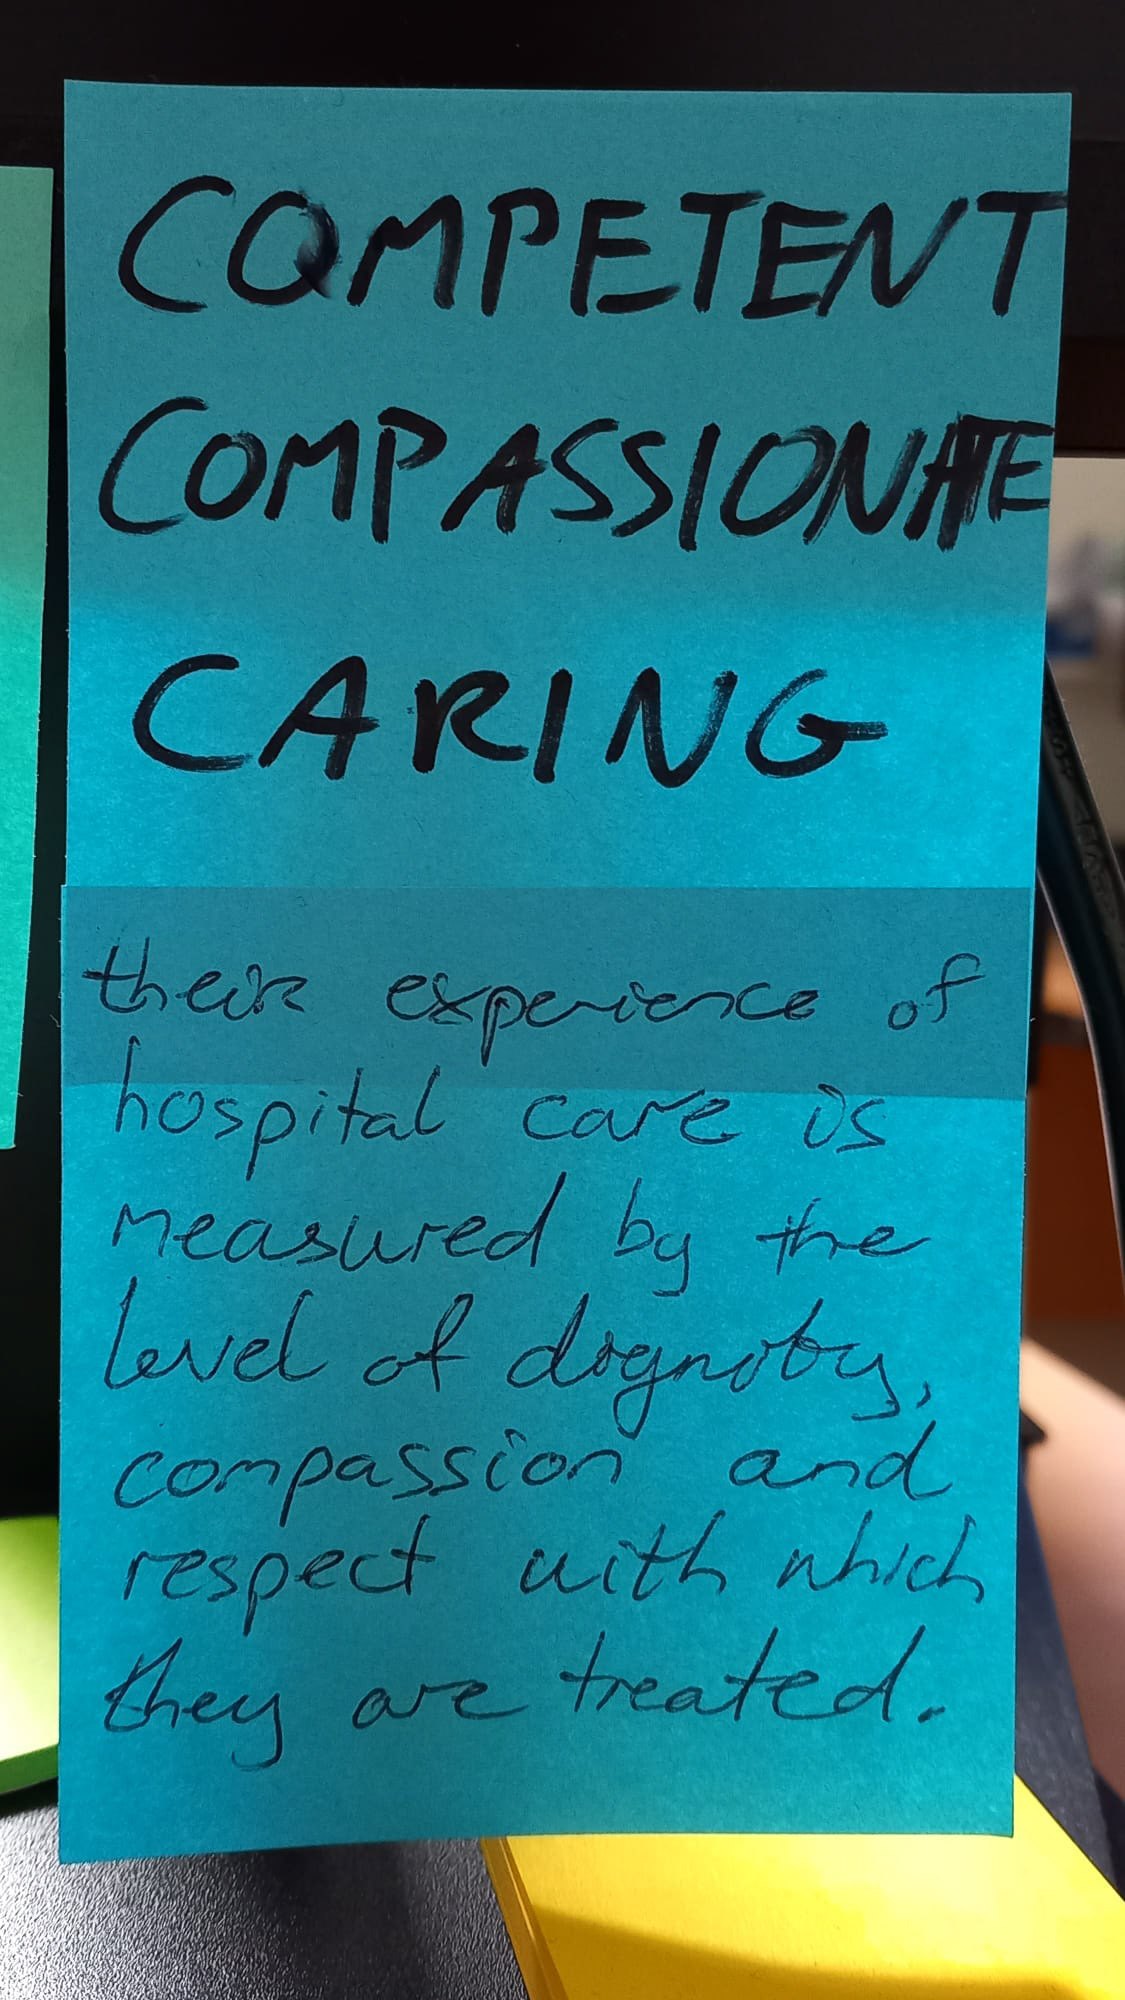 COMPETENT
COMPASSIONATE
CARING
their experience of
hospital care is
measured by the
level of dignity,
compassion and
respect with which
they are treated.